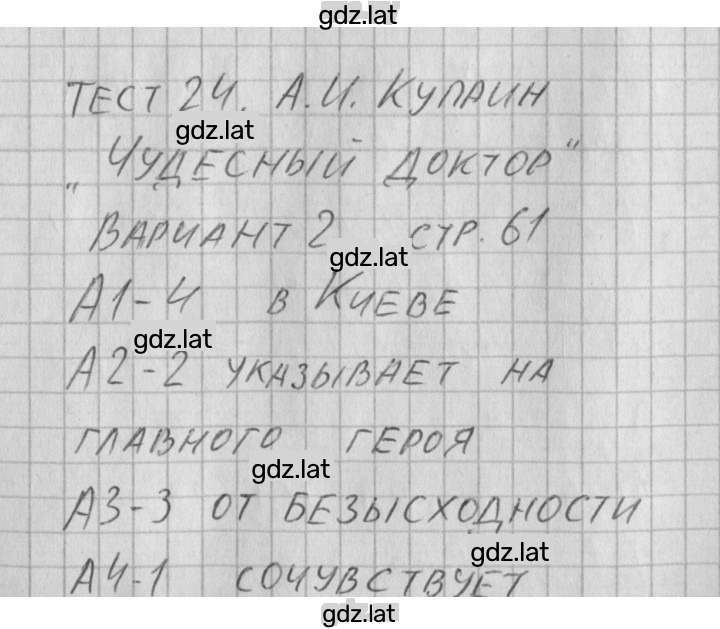 gdz.lat
ТЕСТ 24. А.И. КУПРИН
gdz.lat
„ЧУДЕСНЫЙ ДОКТОР"
ВАРИАНТ 2 СТР. 61
gdz.lat
А1-4 В КИЕВЕ
gdz.lat
А2-2 УКАЗЫВАЕТ НА
ГЛАВНОГО ГЕРОЯ
gdz.lat
А3-3 ОТ БЕЗЫСХОДНОСТИ
gdz.lat
А4-1 СОЧУВСТВУЕТ
gdz.lat